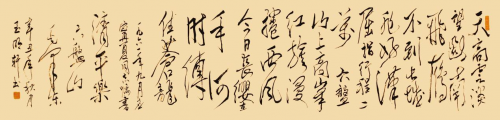 天高雲淡
望斷南
飛雁
不到長城
非好漢
屈指行程二
萬 六盤
山上高峰
紅旗漫
捲西風
今日長纓
在手何
時縛
住蒼龍
一九六一年九月
寧夏同志嘱書
清平樂
六盤山
毛澤東
辛丑年秋月